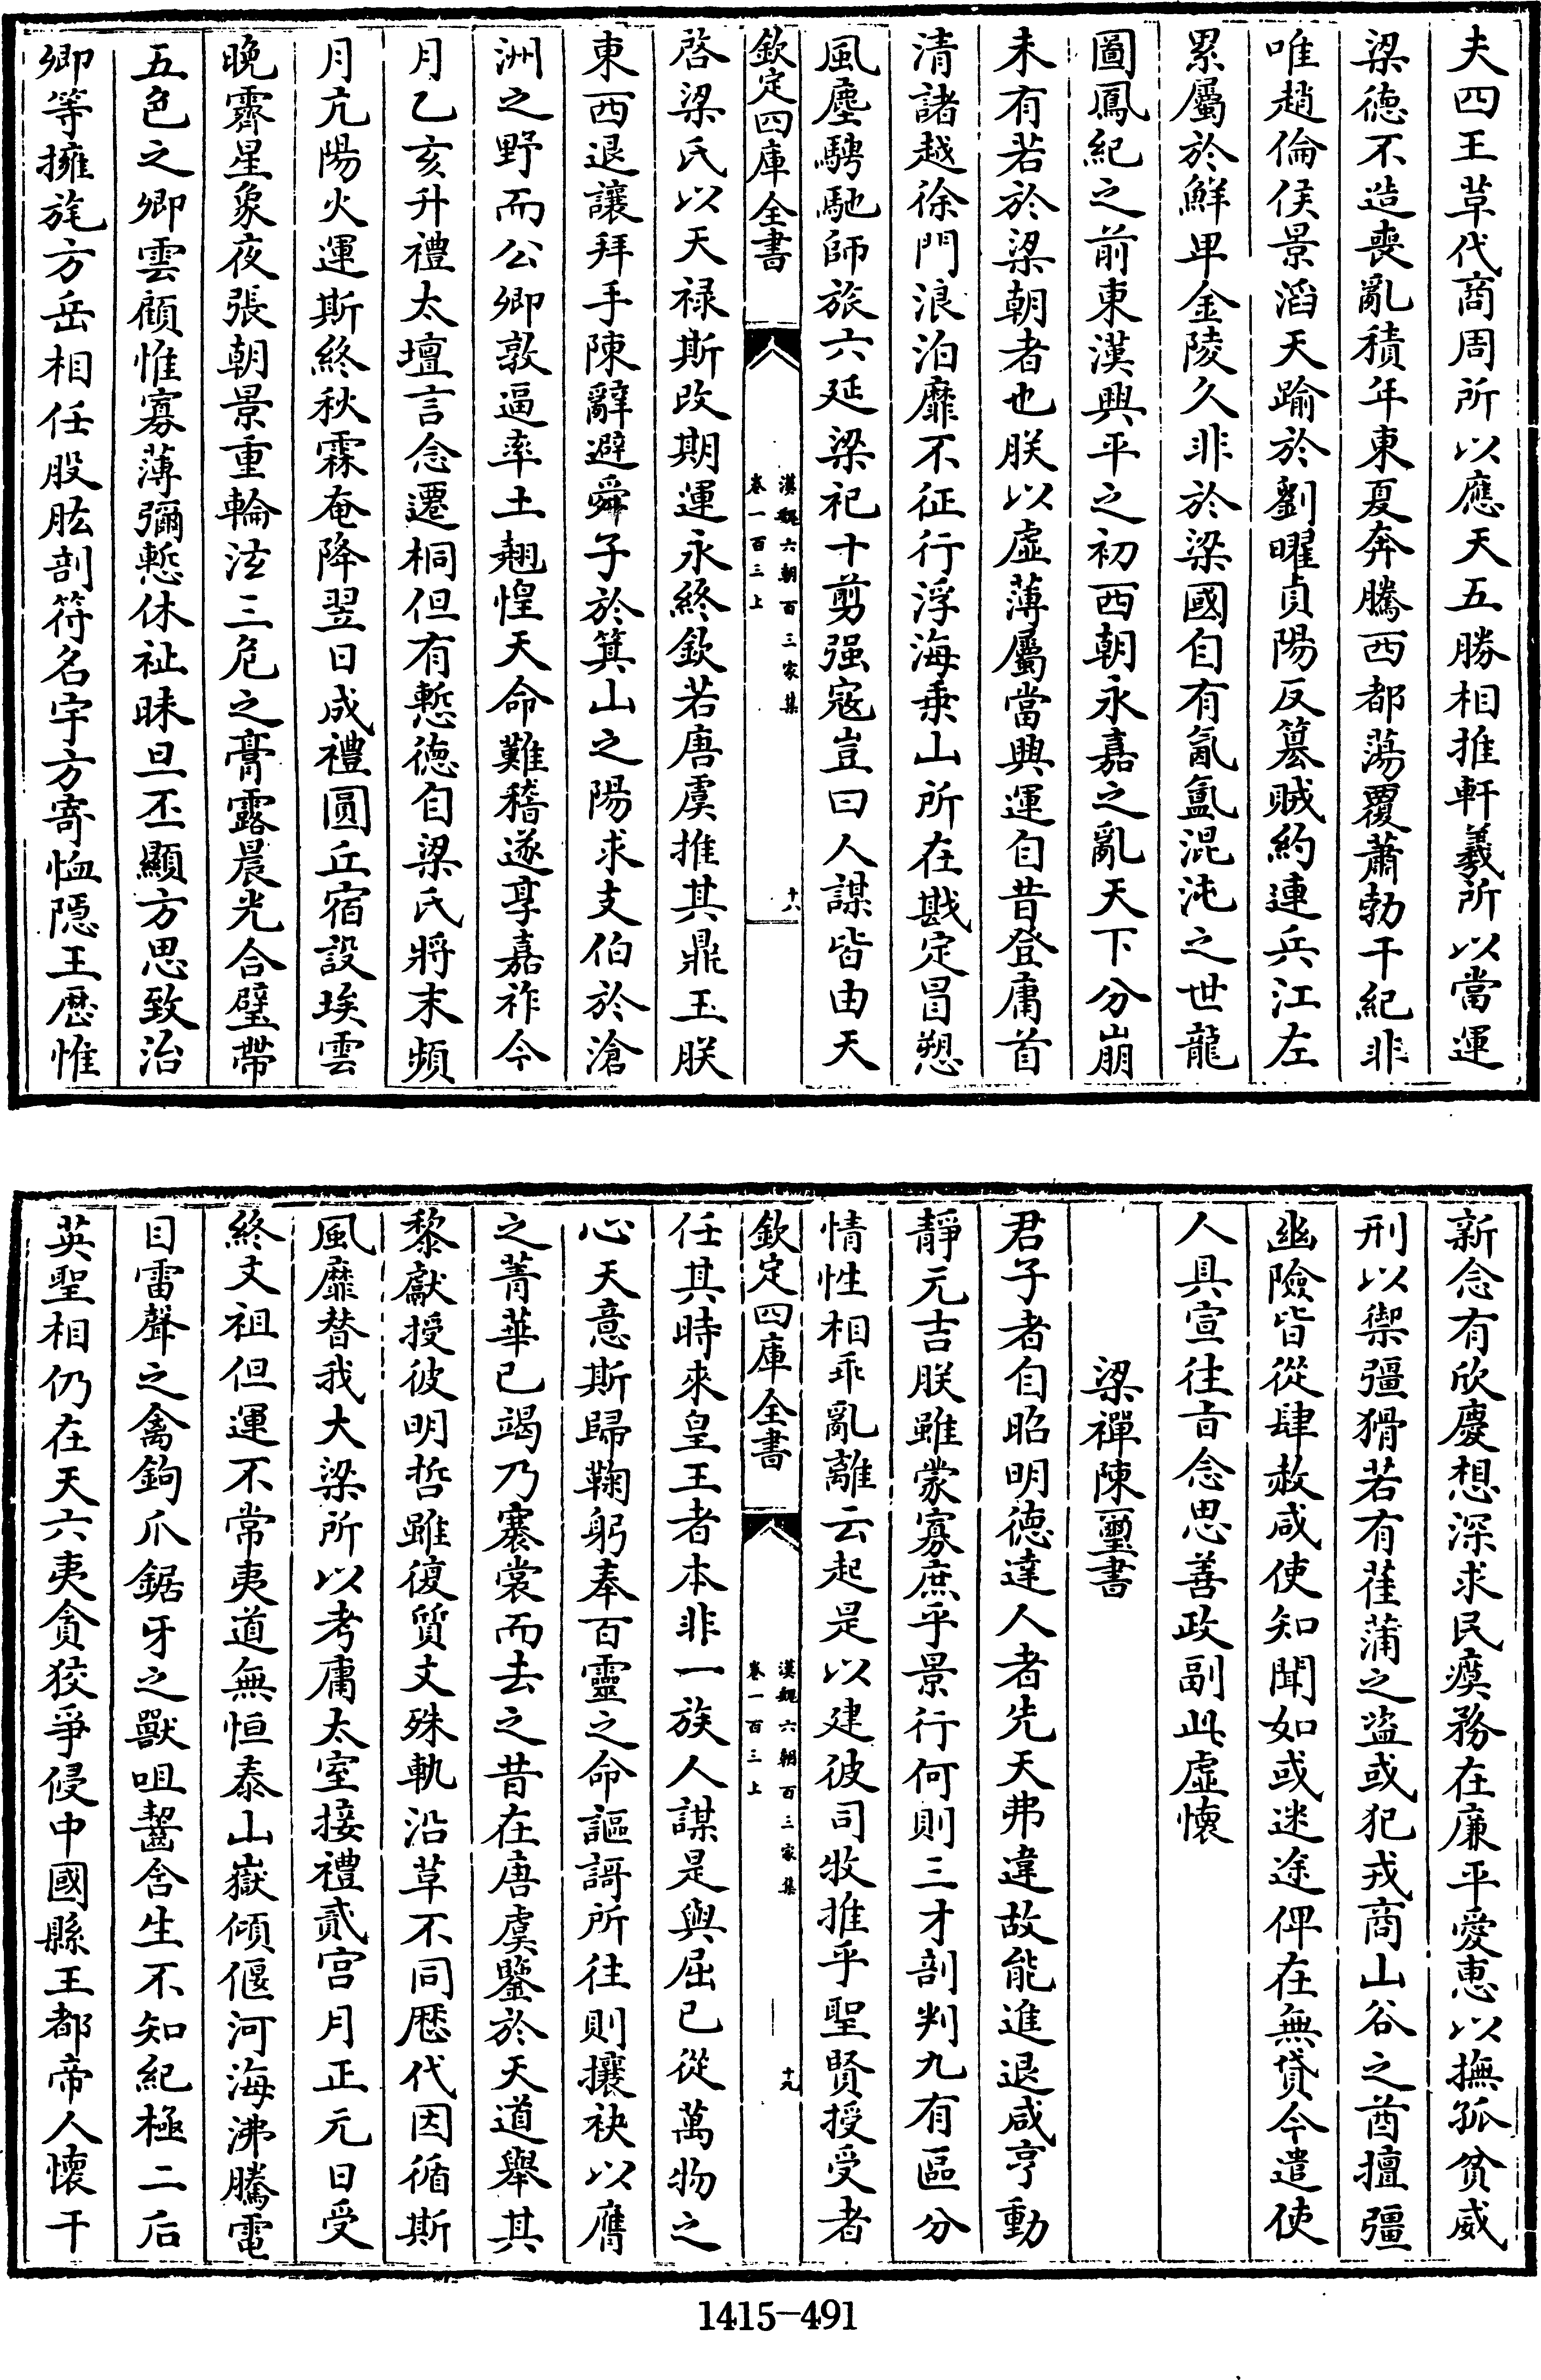 夫四王革代商周所以應天五勝相推軒羲所以當運
梁德不造喪亂積年東夏奔騰西都蕩覆蕭勃干紀非
唯趙倫侯景滔天踰於劉曜貞陽反簒賊約連兵江左
累屬於鮮卑金陵久非於梁國自有氤氲混沌之世龍
圖鳳紀之前東漢興平之初西朝永嘉之亂天下分崩
未有若於梁朝者也朕以虛薄屬當興運自昔登庸首
清諸越徐門浪泊靡不征行浮海乗山所在戡定冒愬
風塵騁馳師旅六延梁祀十剪强寇豈曰人謀皆由天
欽定四庫全書
漢魏六朝百三家集
卷一百三上
十八
啓梁氏以天禄斯改期運永終欽若唐虞推其鼎玉朕
東西退讓拜手陳辭避舜子於箕山之陽求支伯於滄
洲之野而公卿敦逼率土翹惶天命難稽遂享嘉祚今
月乙亥升禮太壇言念遷桐但有慙德自梁氏將末頻
月亢陽火運斯終秋霖奄降翌日成禮圓丘宿設埃雲
晩霽星象夜張朝景重輪泫三危之膏露晨光合璧帶
五色之卿雲顧惟寡薄彌慙休祉昧旦丕顯方思致治
卿等擁旄方岳相任股肱剖符名宇方寄恤隠王厯惟
新念有欣慶想深求民瘼務在廉平愛惠以撫孤貧威
刑以禦彊猾若有萑蒲之盜或犯戎商山谷之酋擅彊
幽險皆從肆赦咸使知聞如或迷途俾在無貸今遣使
人具宣往旨念思善政副此虛懷
梁禪陳璽書
君子者自昭明德達人者先天弗違故能進退咸亨動
靜元吉朕雖蒙寡庶乎景行何則三才剖判九有區分
情性相乖亂離云起是以建彼司牧推乎聖賢授受者
欽定四庫全書
漢魏六朝百三家集
卷一百三上
十九
任其時來皇王者本非一族人謀是與屈己從萬物之
心天意斯歸鞠躬奉百靈之命謳謌所往則攘袂以膺
之菁華已竭乃褰裳而去之昔在唐虞鑒於天道舉其
黎獻授彼明哲雖復質文殊軌沿革不同厯代因循斯
風靡替我大梁所以考庸太室接禮貳宫月正元日受
終文祖但運不常夷道無恒泰山嶽傾偃河海沸騰電
目雷聲之禽鉤爪鋸牙之獸咀齧含生不知紀極二后
英聖相仍在天六夷貪狡爭侵中國縣王都帝人懷干
1415-491